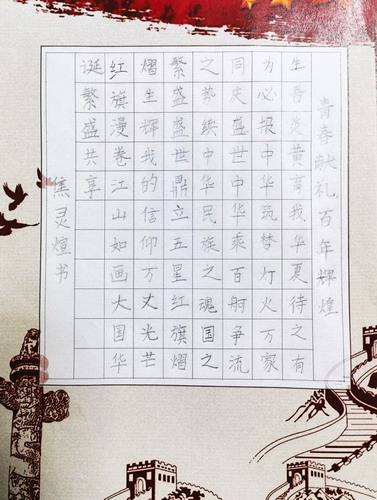 青春献礼,百年辉煌
生吾炎黄育我华夏待之有
为必报中华筑梦灯火万家
同史盛世中华乘百舸争流
之势续中华民族之魂国之
繁盛盛世鼎立五星红旗熠
熠生辉我的信仰万丈光芒
红旗漫卷江山如画大国华
诞繁盛共享
焦灵煊书